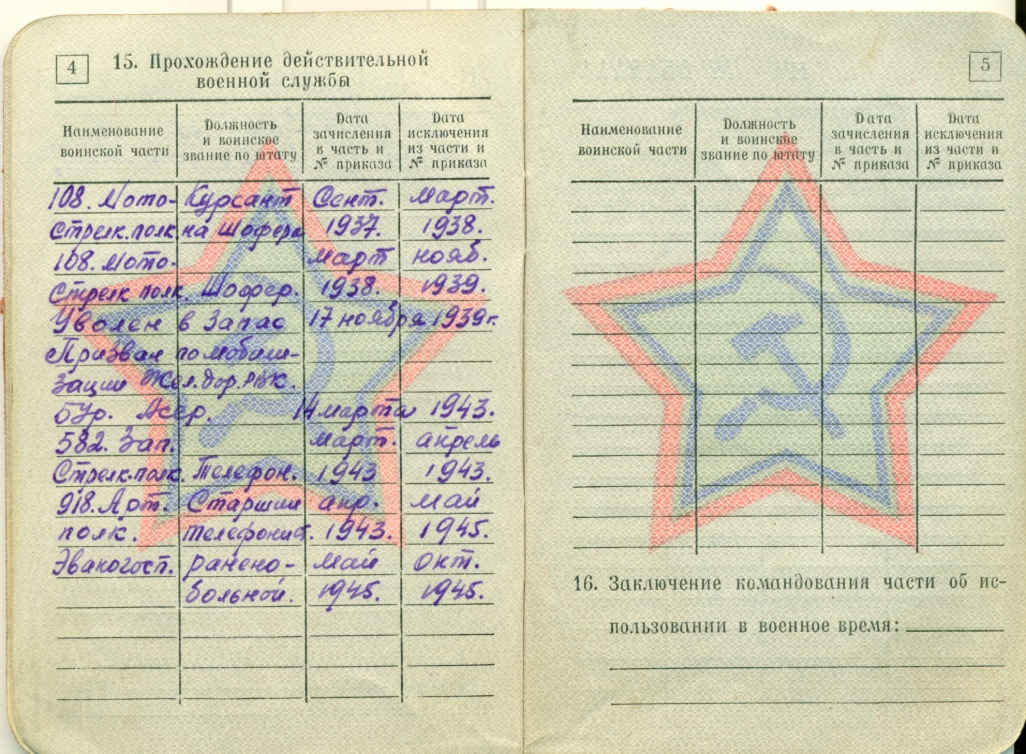 4
15. Прохождение действительной
военной службы
Наименование
воинской части
Должность
и воинское
звание по штату
Дата
зачисления
в часть и
№ приказа
Дата
исключения
из части и
№ приказа
108. Мото- Курсант Сент. Март.
Стрелк. полк на Шофера 1937. 1938.
108. Мото- Март нояб.
Стрелк полк. Шофер. 1938. 1939.
Уволен в Запас 17 ноября 1939г.
Призван по мобили-
зации Жел.дор. РВК.
14 марта 1943.
582. Зап. Март. апрель
Стрелк. полк. Телефон. 1943 1943.
918. Арт. Старший апр. май
полк. телефонист. 1943. 1945.
Эвакогосп. ранено- май окт.
больной. 1945. 1945.
5
Наименование
воинской части
Должность
и воинское
звание по штату
Дата
зачисления
в часть и
№ приказа
Дата
исключения
из части и
№ приказа
16. Заключение командования части об ис-
пользовании в военное время: